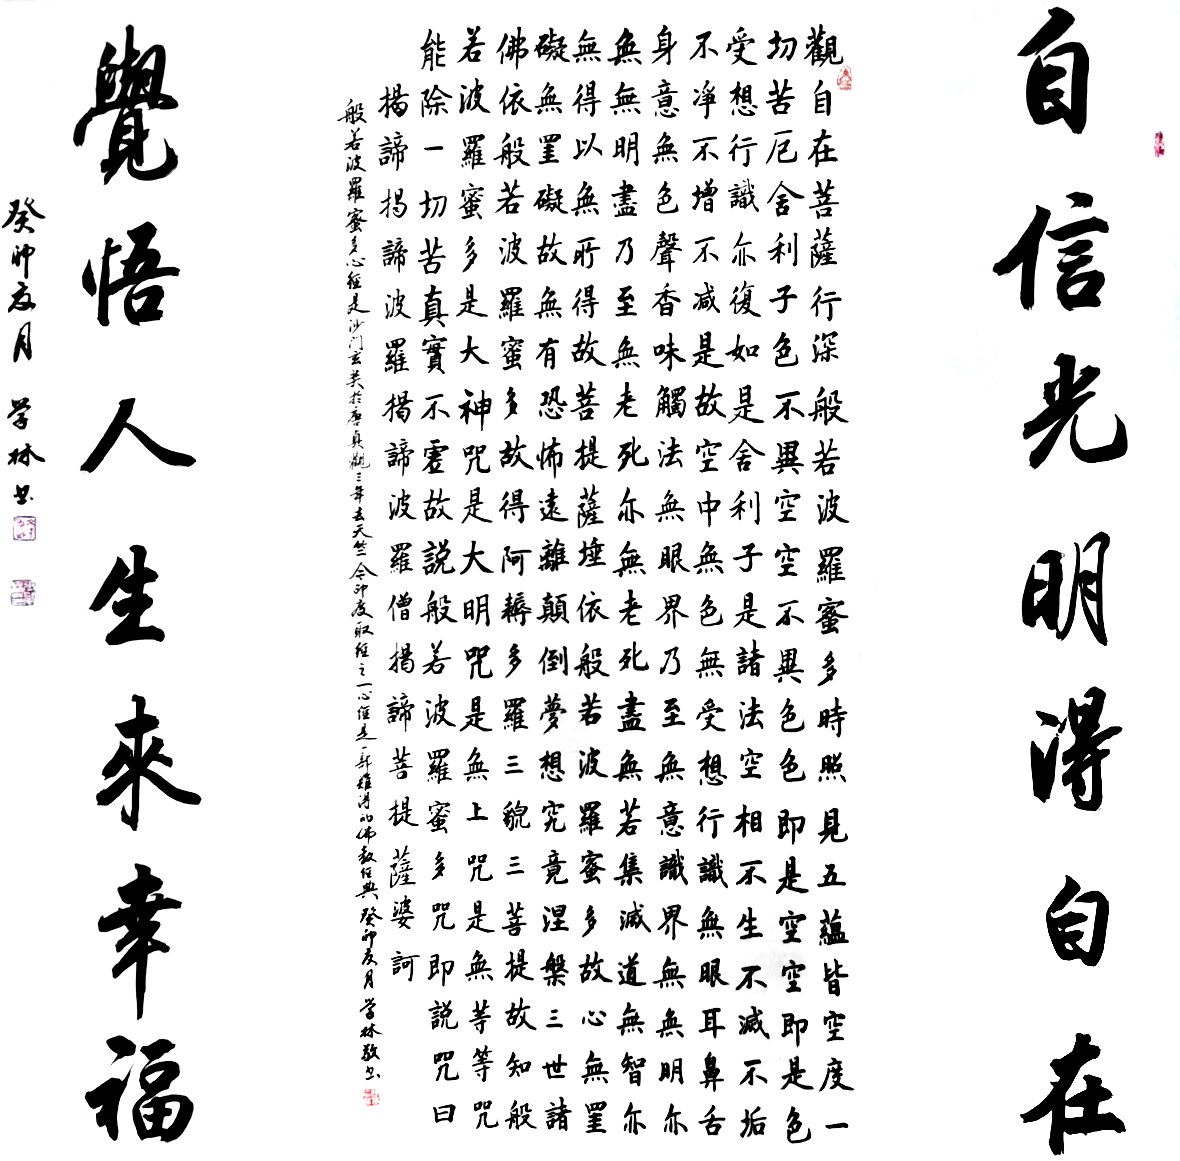 自信光明得自在
觀自在菩薩行深般若波羅蜜多時照見五蘊皆空度一
切苦厄舍利子色不異空空不異色色即是空空即是色
受想行識亦復如是舍利子是諸法空相不生不滅不垢
不凈不增不减是故空中無色無受想行識無眼耳鼻舌
身意無色聲香味觸法無眼界乃至無意識界無無明亦
無無明盡乃至無老死亦無老死盡無若集滅道無智亦
無得以無所得故菩提薩埵依般若波羅蜜多故心無罣
礙無罣礙故無有恐怖遠離顛倒夢想究竟涅槃三世諸
佛依般若波羅蜜多故得阿耨多羅三藐三菩提故知般
若波羅蜜多是大神咒是大明咒是無上咒是無等等咒
能除一切苦真實不虛故説般若波羅蜜多咒即説咒曰
揭諦揭諦波羅揭諦波羅僧揭諦菩提薩婆訶
般若波羅蜜多心經是沙门玄奘於唐貞觀三年去天竺今印度取经之一心经是一部难得的佛教经典癸卯夏月学林敬书
覺悟人生來幸福
癸卯夏月 学林书